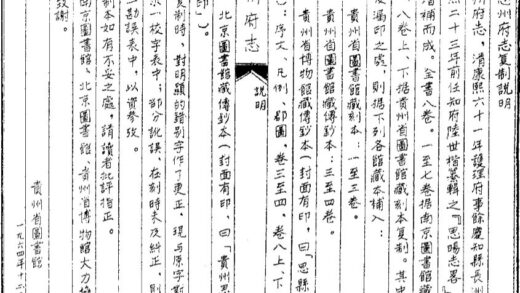 州府志复制說明
州府志，清康熙六十一年護理府事餘慶知縣長洲
熙二十三年前任知府陸世楷纂輯之「思暘志畧
增補而成。全書八卷。一至七卷据南京圖書館藏
八卷上、下据貴州省圖書館藏刻本复制。其中
及漏印之處，則据下列各館藏本補入：
貴州省圖書館藏刻本：一至三卷。
貴州省圖書館藏傳鈔本：三至四卷。
貴州省博物館藏傳鈔本（封面有印，曰「思縣
：序文、凡例、郡圖、卷三至四、卷八上、下
府志
說明
北京圖書館藏傳鈔本（封面有印，曰「貴州思
印」）。
复制時，對明顯的錯別字作了更正，現与原字
一校字表中；部分訛誤，在刻時未及糾正，則
勘誤表中，以資參攷。
制本如有不妥之處，請讀者批評指正。
南京圖書館、北京圖書館、貴州省博物館大力協
致謝。
貴州省圖書館
一九六四年十二